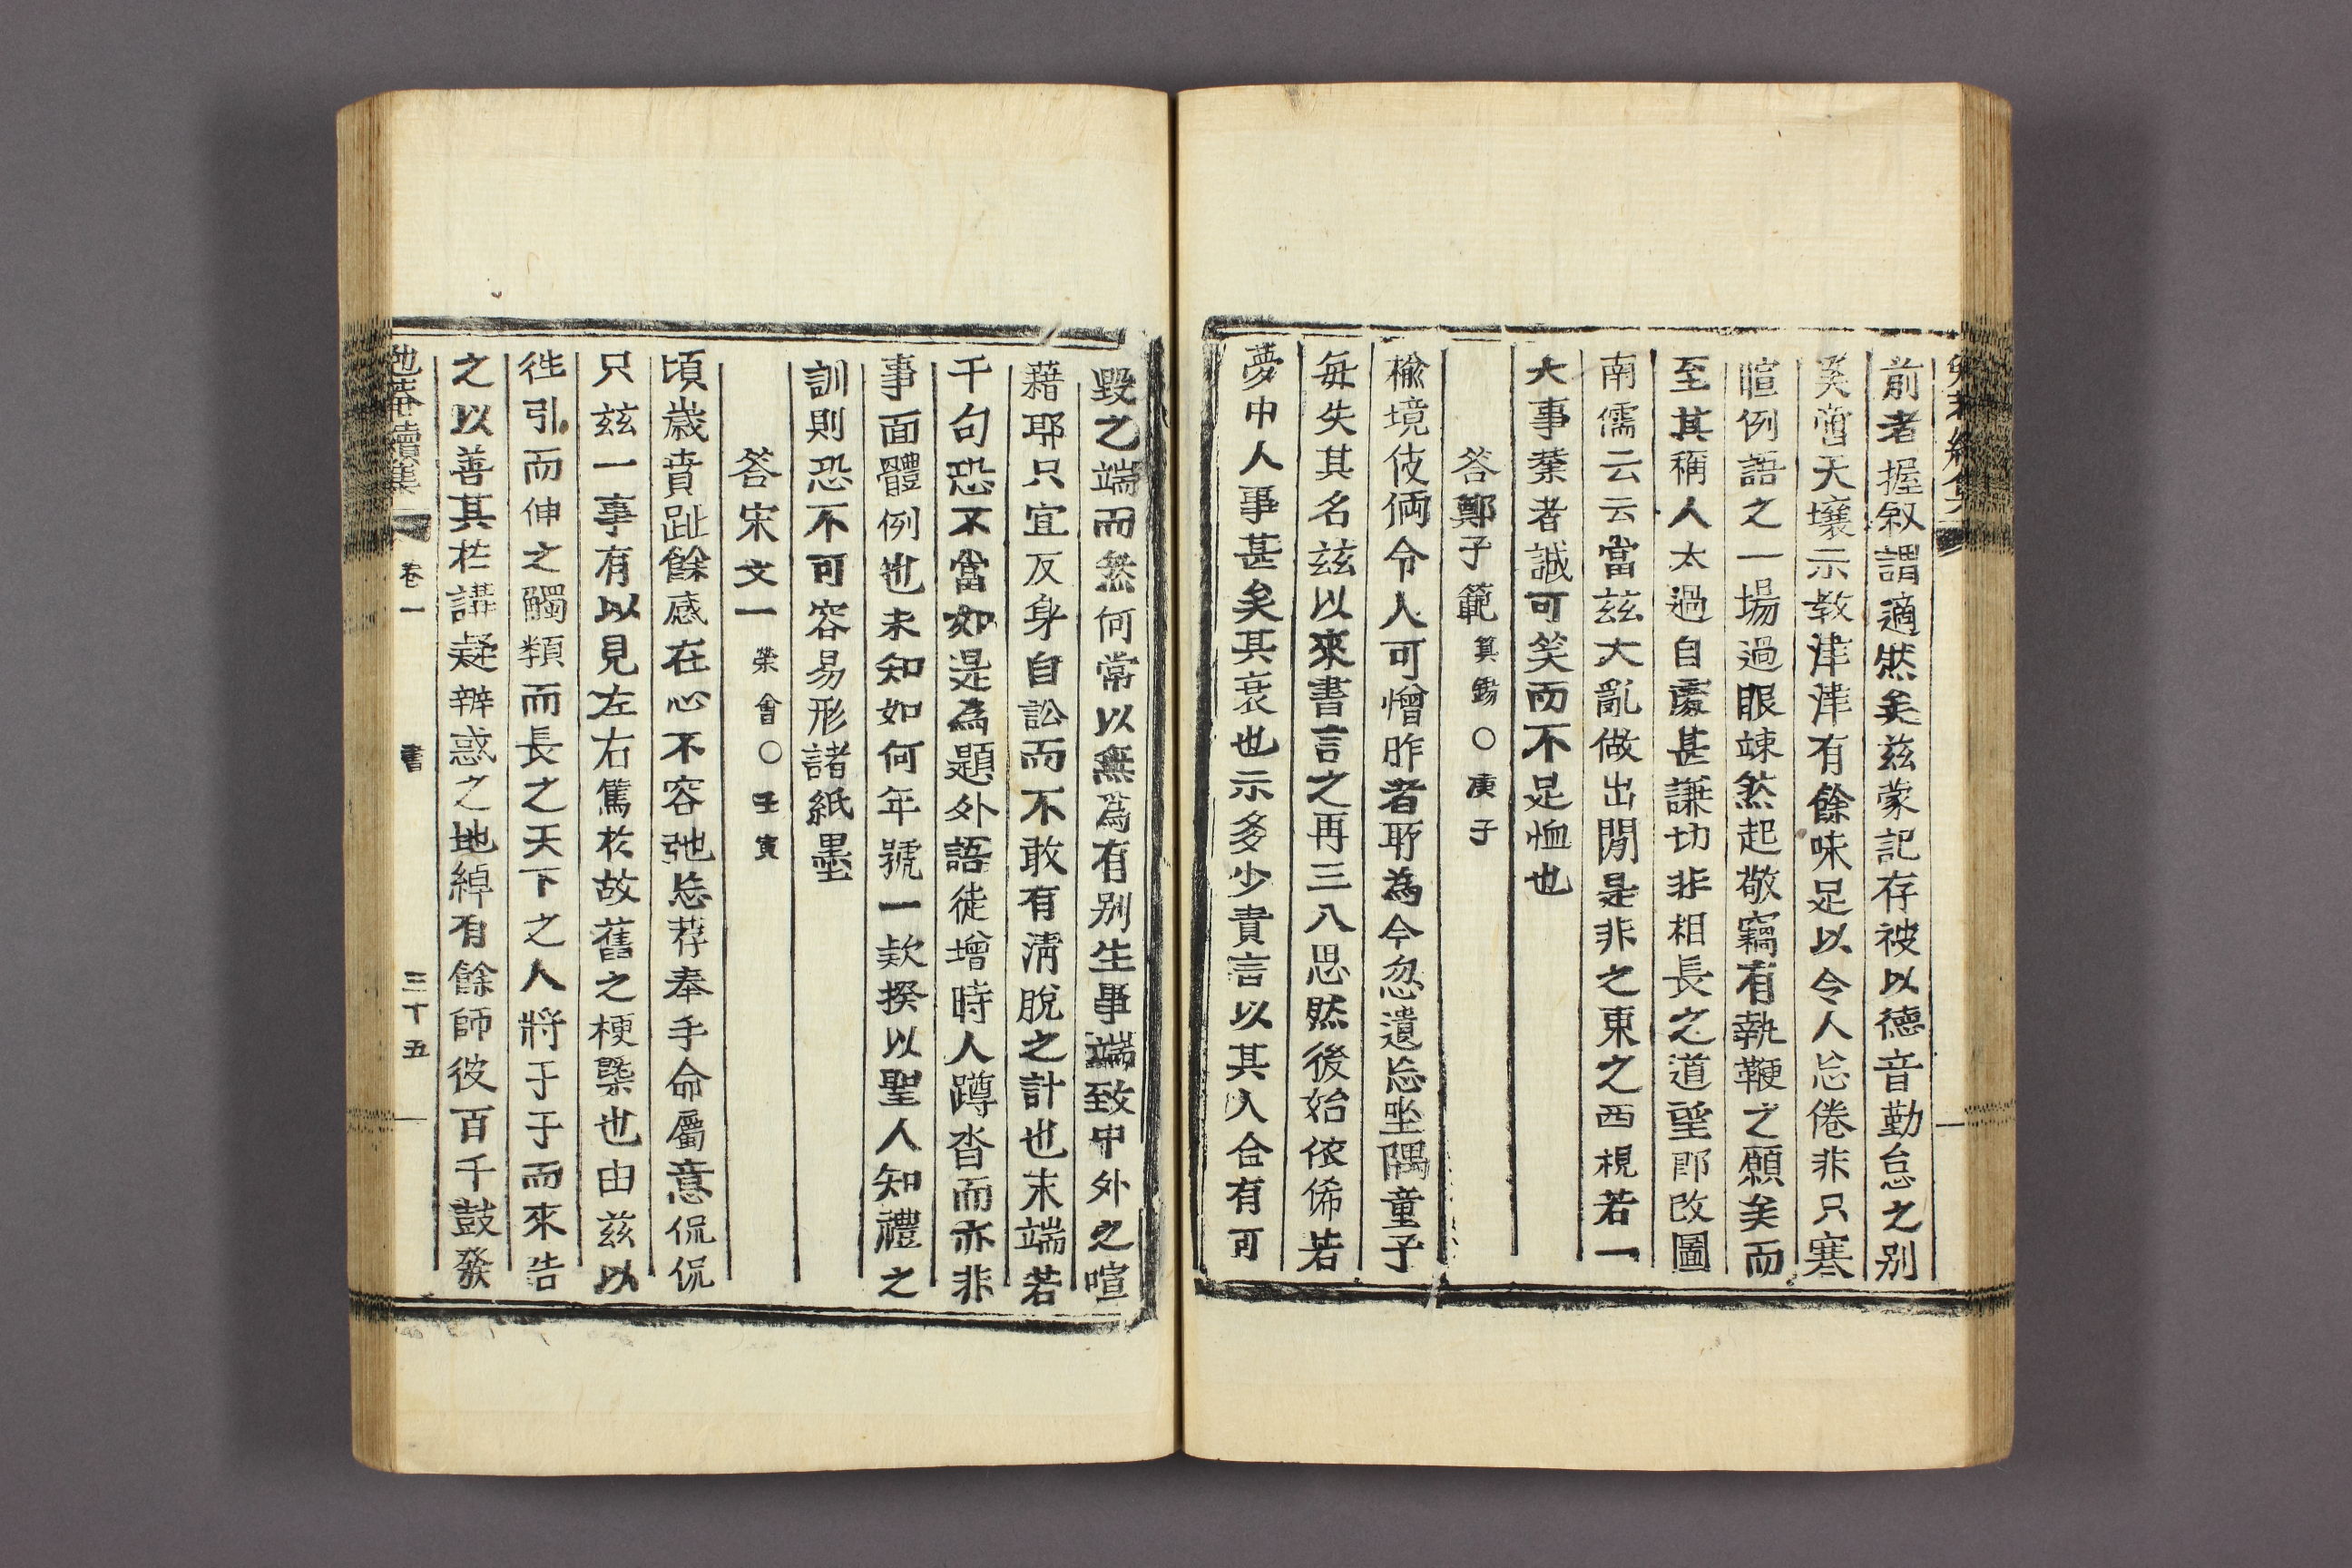 前者握叙謂適然矣茲蒙記存被以德音勤怠之別
奚啻天壤示敎津津有餘味足以令人忘倦非只寒
暄例語之一場過眼竦然起敬竊有執鞭之願矣而
至其稱人太過自處甚謙切非相長之道望卽改圖
南儒云云當茲大亂做出閒是非之東之西視若一
大事業者誠可笑而不足恤也
答鄭子範箕錫○庚子
楡境伎倆令人可憎昨者耶爲今忽遺忘坐隅童子
每失其名茲以來書言之再三入思然後始依俙若
夢中人事甚矣其衰也示多少貴言以其入合有可
毀之端而然何常以無爲有別生事端致中外之喧
藉耶只宜反身自訟而不敢有淸脫之計也末端若
千句恐不當如是爲題外語徒增時人蹲沓而亦非
事面體例也未知如何年號一欵揆以聖人知禮之
訓則恐不可容易形諸紙墨
答宋文一榮會○壬寅
頃歲賁趾餘感在心不容弛忘荐奉手命屬意侃侃
只茲一事有以見左右篤於故舊之梗槩也由茲以
徃引而伸之觸類而長之天下之人將于于而來告
之以善其於講疑辨惑之地綽有餘師彼百千鼓發
續集 卷一 書 三十五